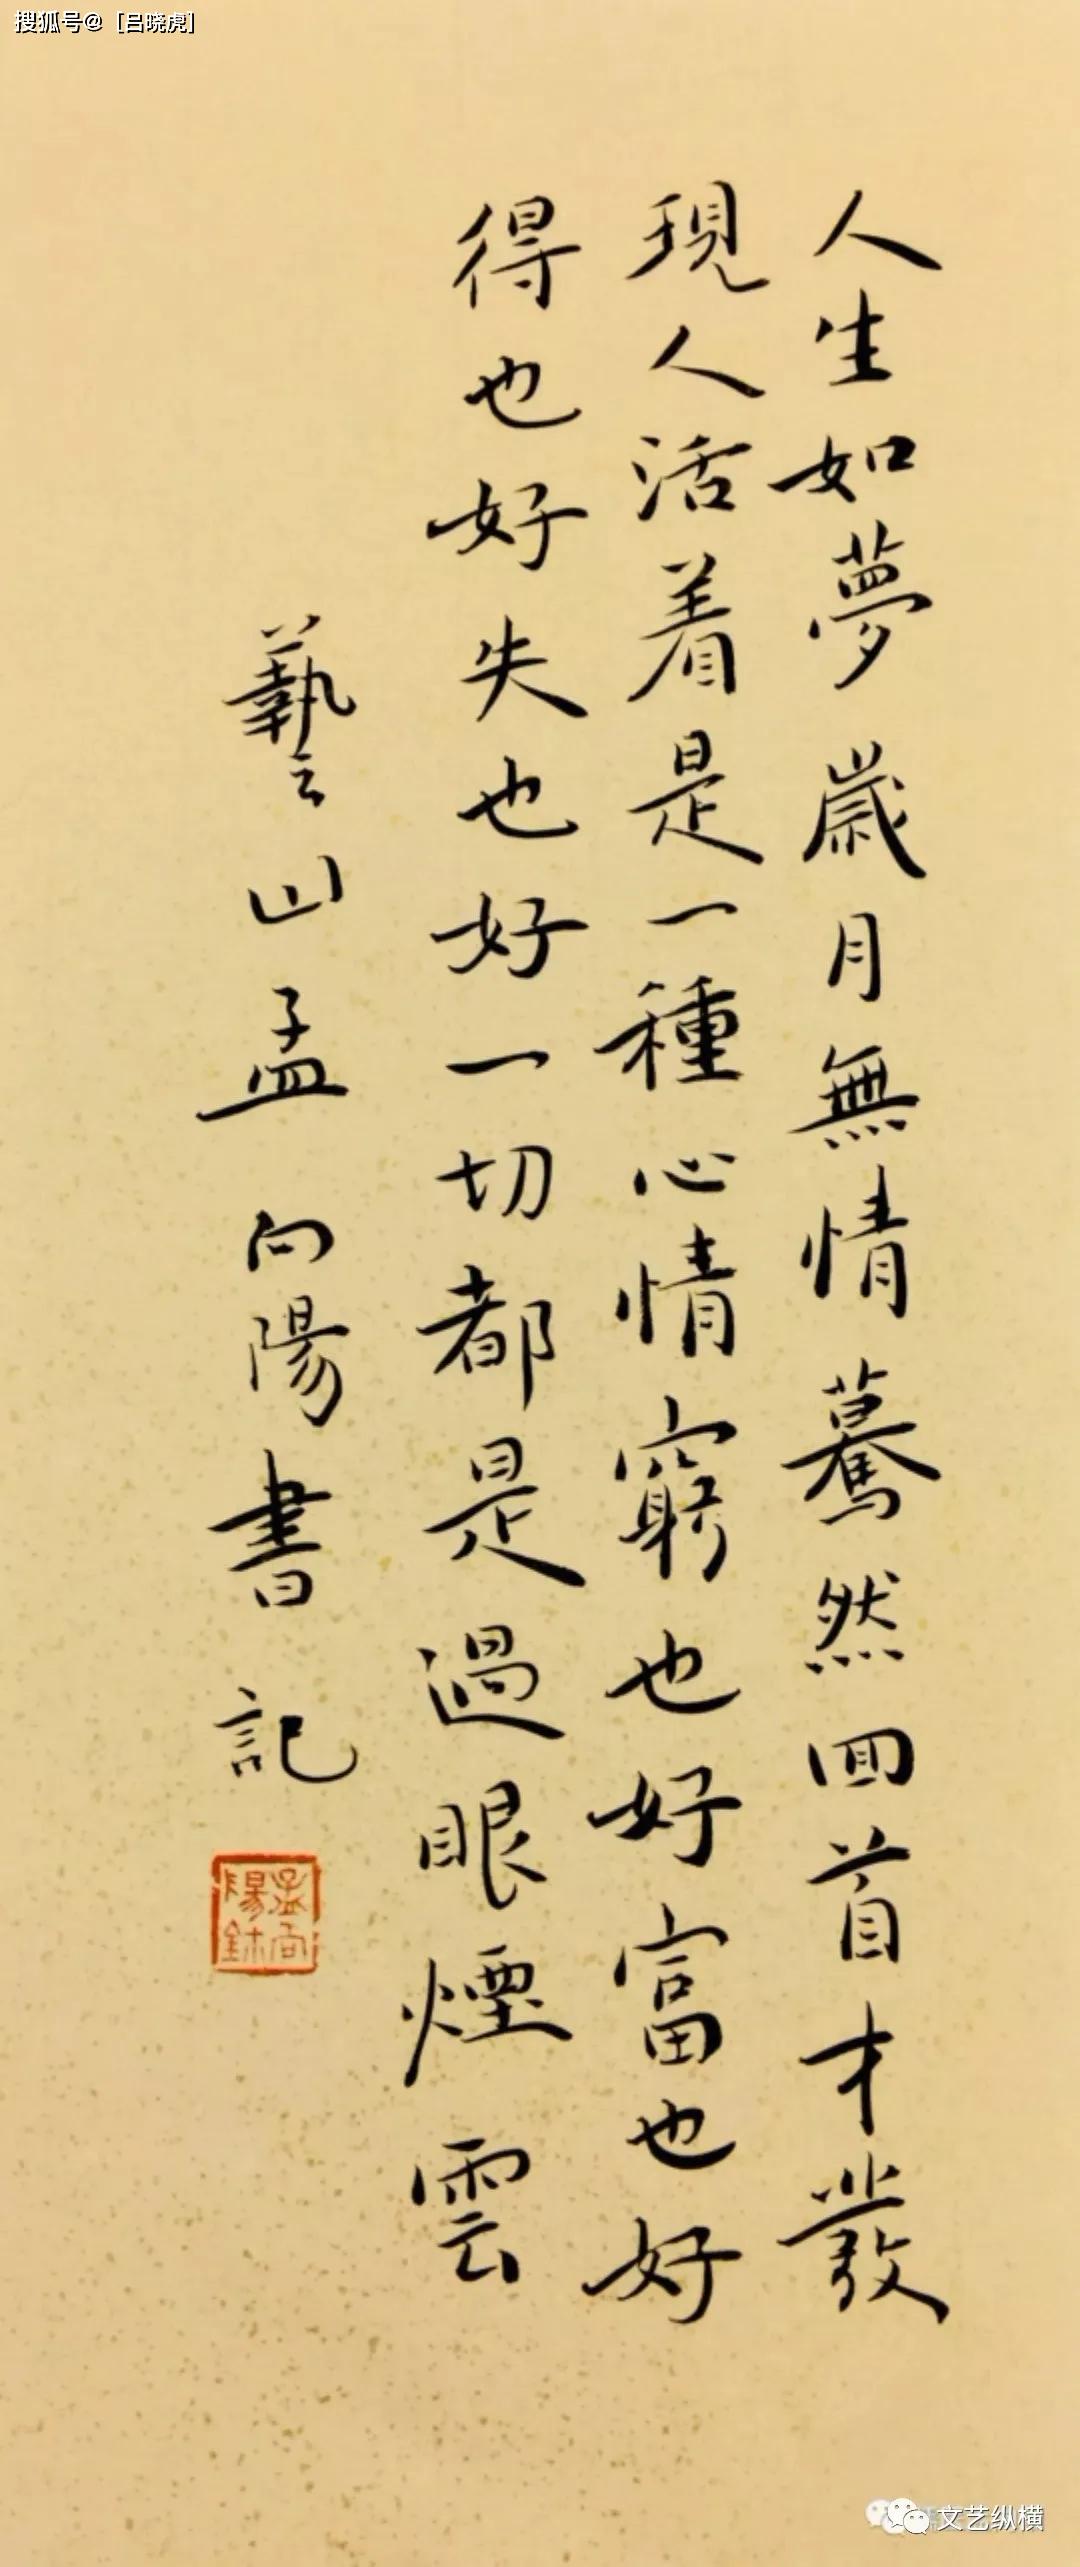 搜狐号@［吕晓虎］
人生如夢歲月無情驀然回首才發
現人活着是一種心情窮也好富也好
得也好失也好一切都是過眼煙雲
藝山孟向陽書記
孟向
陽鉢
文艺纵横